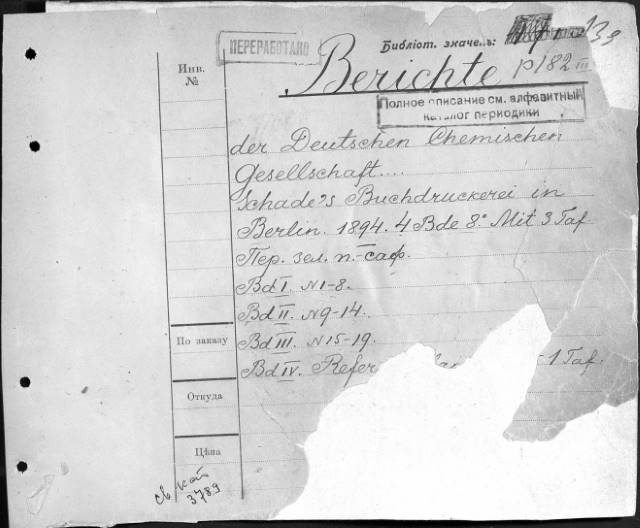 ПЕРЕРАБОТАНО
Библіот. значекъ:
139
Инв.
№
Berichte
P182 III
Полное описание см. алфавитный
каталог периодики
der Deutschen Chemischen
Gesellschaft....
Schade's Buchdruckerei in
Berlin. 1894. 4 Bde 8.° Mit 3 Taf.
Пер. зел. п.-саф.
Bd I. N 1-8.
Bd II. N 9-14.
По заказу
Bd III. N 15-19.
Bd IV. Refer
- 1 Taf.
Откуда
Цѣна
св/кат
3789